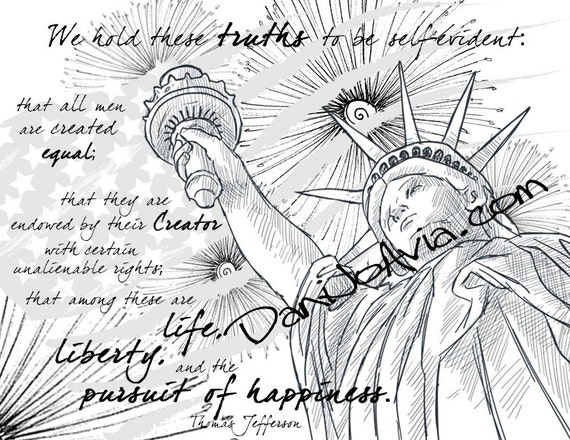 We hold these truths to be self-evident:
that all men
are created
equal;
that they are
endowed by their Creator
with certain
unalienable rights;
that among these are
life.
liberty. and the
pursuit of happiness.
Thomas Jefferson
DaniJoAvia.com